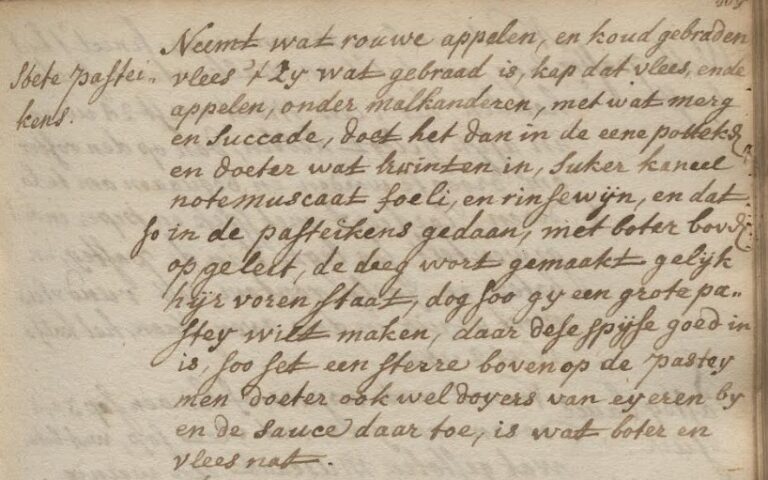 Neemt wat rouwe appelen, en koud gebraden
Soete pastei-
kens.
vlees 't zy wat gebraad is, kap dat vlees, ende
appelen, onder malkanderen, met wat merg
en succade, doet het dan in de eene
en doeter wat krinten in, suker kaneel
notemuscaat foeli, en rinsewijn, en dat
so in de pasteikens gedaan, met boter bov
op geleit, de deeg wort gemaakt gelijk
hijr voren staat, dog soo gy een grote pa-
stey wilt maken, daar dese spijse goed in
is, soo set een sterre boven op de pastey
men doeter ook wel doyers van eyeren by
en de sauce daar toe, is wat boter en
vlees nat.